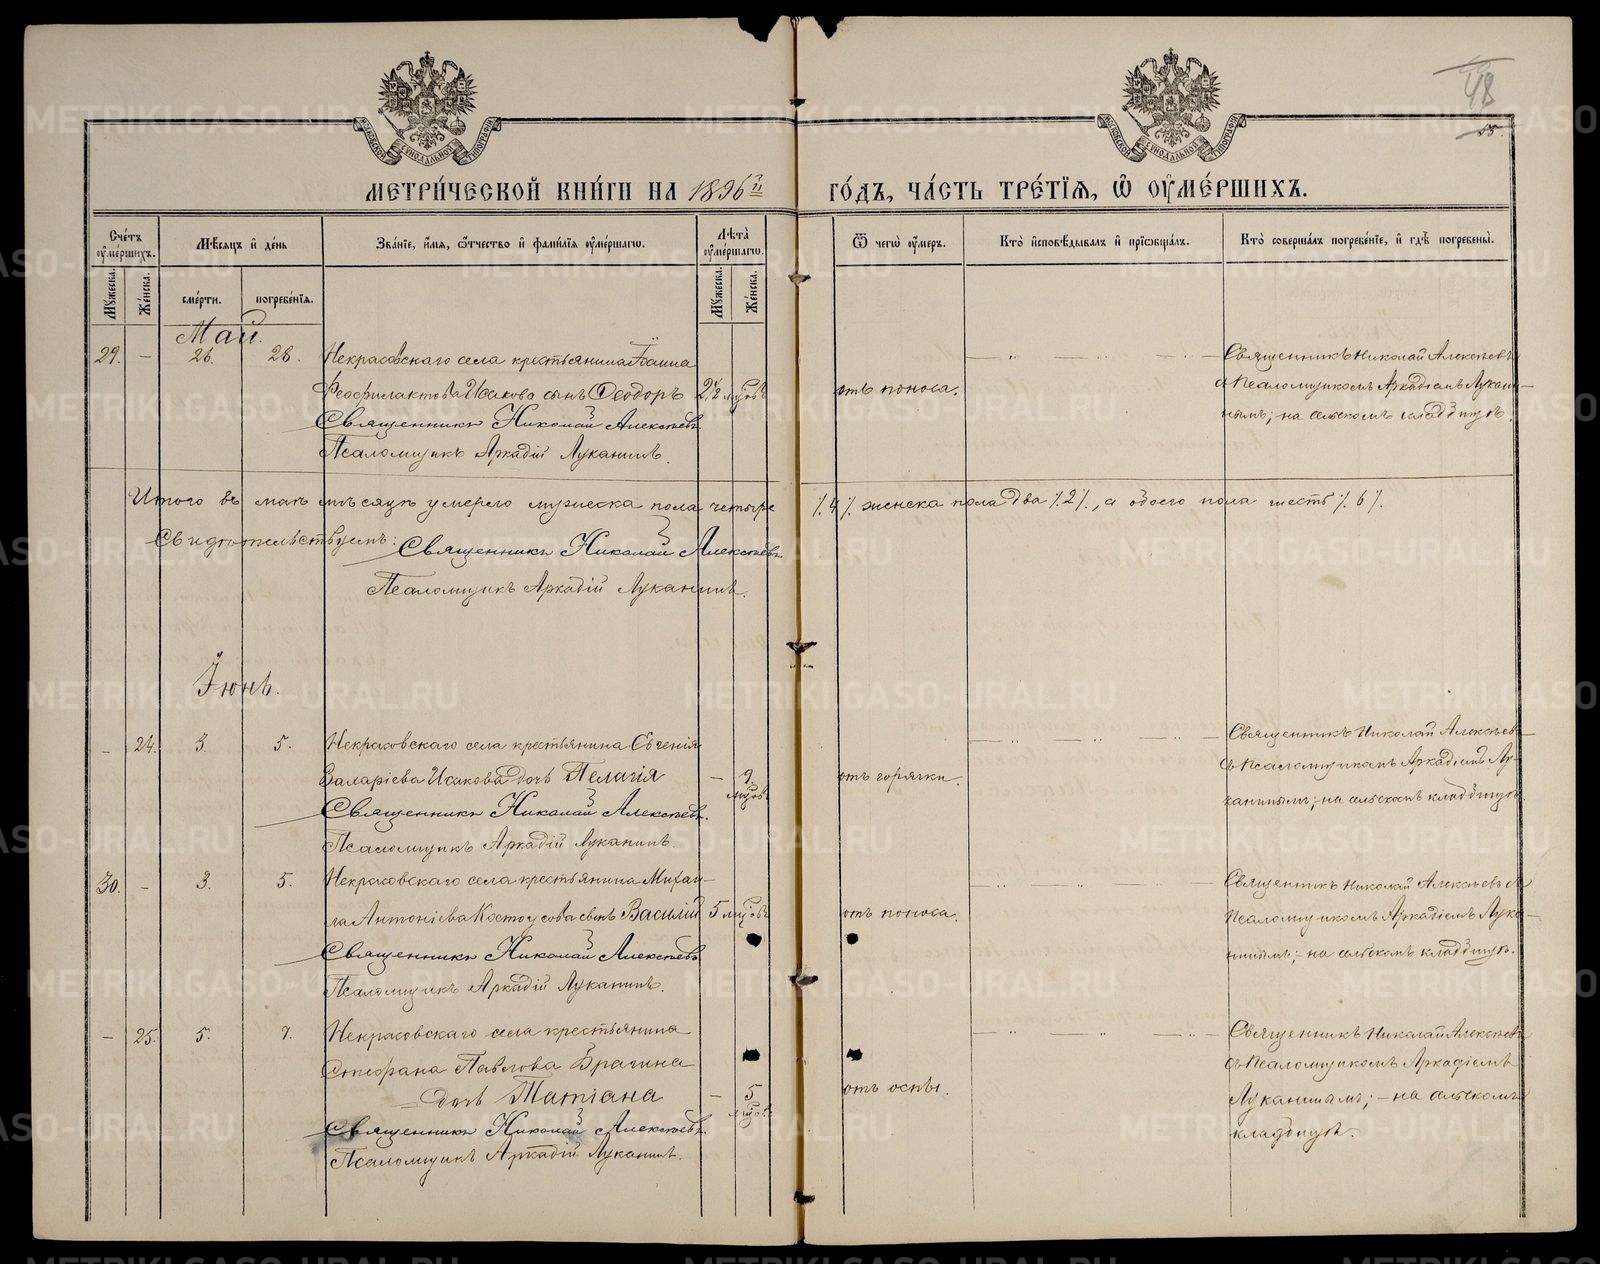 48
55.
МОСКОВСКОЙ СѴНОДАЛЬНОЙ ТИПОГРАФІИ
МОСКОВСКОЙ СѴНОДАЛЬНОЙ ТИПОГРАФІИ
МЕТРИ́ЧЕСКОЙ КНИ́ГИ НА 1896й ГО́ДЪ, ЧА́СТЬ ТРЕ́ТІѦ, Ѡ҆ ОУ҆МЕ́РШИХЪ.
Счетъ оумершихъ.
Мѣсяцъ и день
Званіе, имя, отчество и фамилія оумершагω.
Лѣта оумершагω.
Ѿ чегω оумеръ.
Кто исповѣдывалъ и пріобщалъ.
Кто совершалъ погребеніе, и гдѣ погребены.
Мужеска.
Женска.
смерти.
погребенія.
Мужеска.
Женска.
Май.
29. – 26. 28. Некрасовскаго села крестьянина Іоанна
Феофилактова Исакова сынъ Ѳеодоръ 2½ мцовъ
Священникъ Николай Алексѣевъ
Псаломщикъ Аркадій Луканинъ.
отъ поноса.
Священникъ Николай Алексѣевъ
съ Псаломщикомъ Аркадіемъ Лукани-
нымъ; на сельскомъ кладбищѣ.
Итого въ маѣ мѣсяцѣ умерло мужеска пола четыре /.4/. женска пола два /.2/., а обоего пола шесть /.6/.
Свидѣтельствуемъ: Священникъ Николай Алексѣевъ.
Псаломщикъ Аркадій Луканинъ.
Іюнь.
– 24. 3. 5. Некрасовскаго села крестьянина Евгенія
Валаріева Исакова дочь Пелагія – 9. мцовъ
Священникъ Николай Алексѣевъ.
Псаломщикъ Аркадій Луканинъ.
отъ горячки.
Священникъ Николай Алексѣевъ
съ Псаломщикомъ Аркадіемъ Лу-
канинымъ; на сельскомъ кладбищѣ.
30. – 3. 5. Некрасовскаго села крестьянина Михаи-
ла Антоніева Костоусова сынъ Василій 5 мцовъ
Священникъ Николай Алексѣевъ
Псаломщикъ Аркадій Луканинъ.
отъ поноса.
Священникъ Николай Алексѣевъ съ
Псаломщикомъ Аркадіемъ Лука-
нинымъ; на сельскомъ кладбищѣ.
– 25. 5. 7. Некрасовскаго села крестьянина
Стефана Павлова Брагина
дочь Татіана – 5 мцовъ
Священникъ Николай Алексѣевъ.
Псаломщикъ Аркадій Луканинъ.
отъ оспы.
Священникъ Николай Алексѣевъ
съ Псаломщикомъ Аркадіемъ
Луканинымъ; – на сельскомъ
кладбищѣ.
METRIKI.GASO-URAL.RU